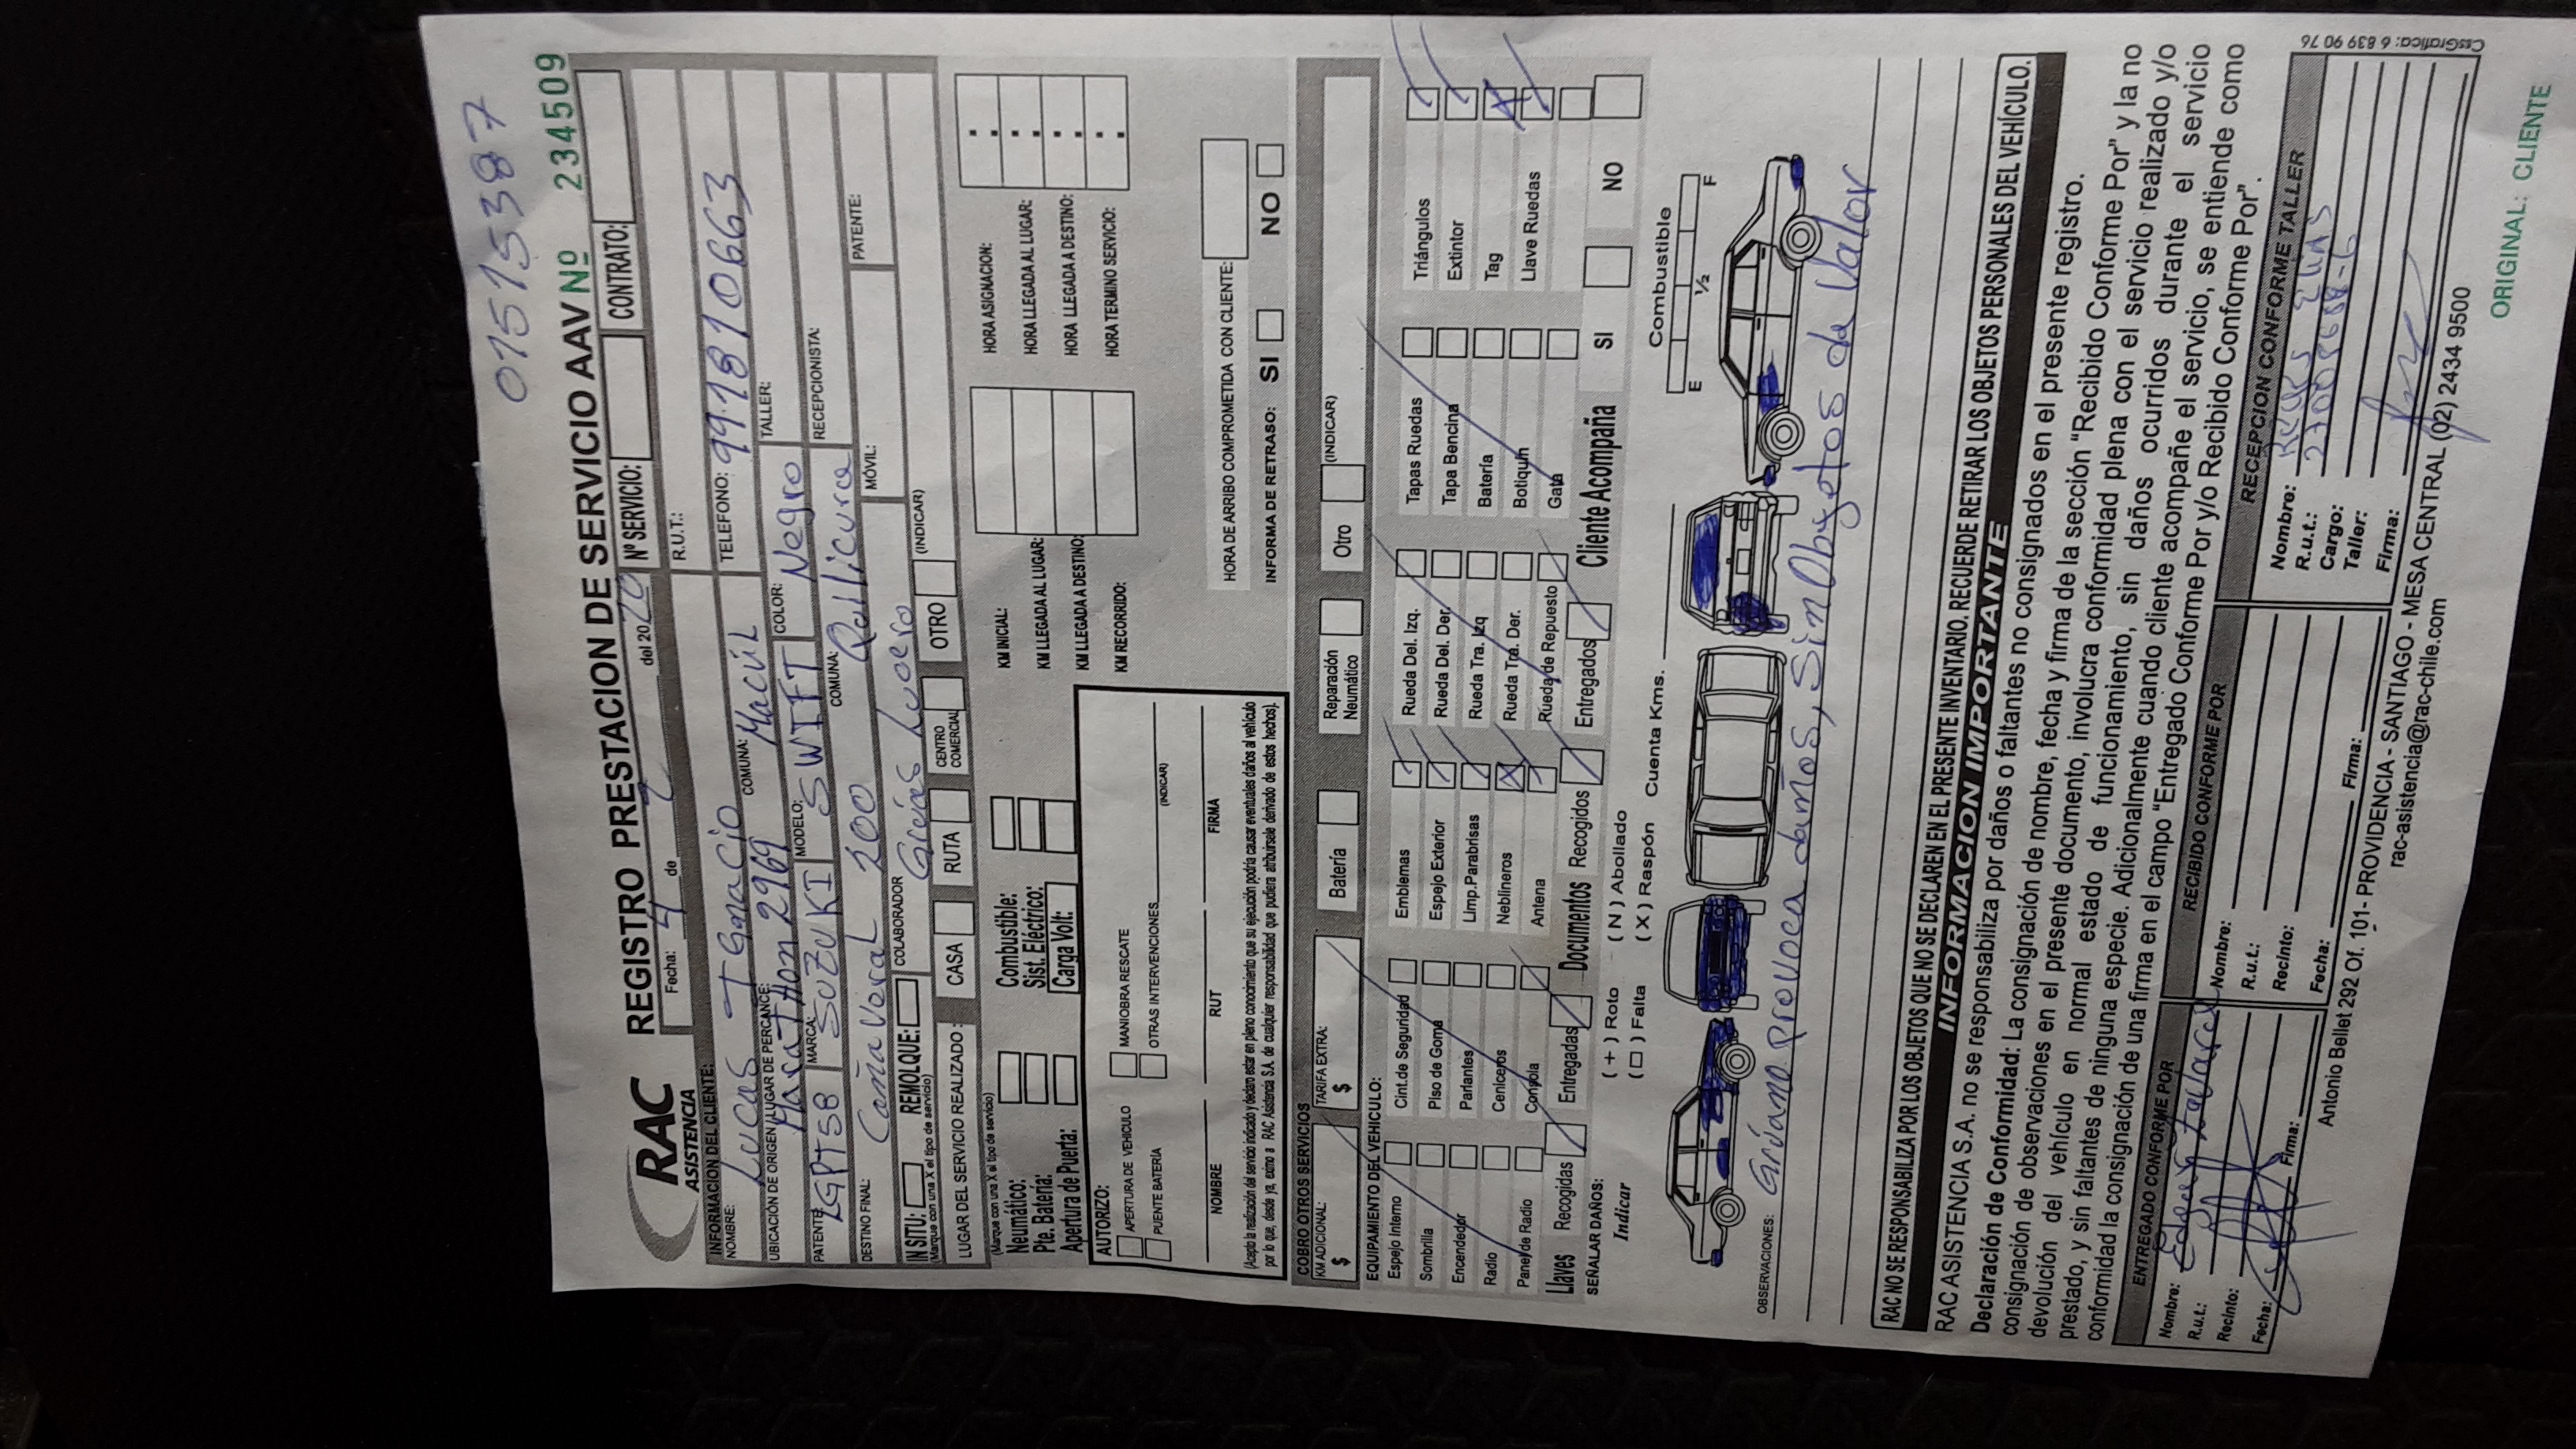 01515387
RAC
ASISTENCIA
REGISTRO PRESTACION DE SERVICIO AAV Nº 234509
Fecha: 4 de 2 del 2020 Nº SERVICIO: CONTRATO:
INFORMACION DEL CLIENTE: R.U.T.:
NOMBRE: Lucas Ignacio TELEFONO: 991810663
UBICACIÓN DE ORIGEN / LUGAR DE PERCANCE: Marathon 2969 COMUNA: Macúl TALLER:
PATENTE: LGPT58 MARCA: SUZUKI MODELO: SWIFT COLOR: Negro RECEPCIONISTA:
DESTINO FINAL: Caña veral 200 COMUNA: Quilicura MÓVIL: PATENTE:
IN SITU: REMOLQUE: COLABORADOR Grúas Lucero
(Marque con una X el tipo de servicio)
LUGAR DEL SERVICIO REALIZADO : CASA RUTA CENTRO COMERCIAL OTRO (INDICAR)
(Marque con una X el tipo de servicio)
Neumático: Combustible:
Pte. Batería: Sist. Eléctrico:
Apertura de Puerta: Carga Volt:
KM INICIAL: HORA ASIGNACION:
KM LLEGADA AL LUGAR: HORA LLEGADA AL LUGAR:
KM LLEGADA A DESTINO: HORA LLEGADA A DESTINO:
KM RECORRIDO: HORA TERMINO SERVICIO:
AUTORIZO:
APERTURA DE VEHICULO MANIOBRA RESCATE
PUENTE BATERÍA OTRAS INTERVENCIONES (INDICAR)
NOMBRE RUT FIRMA
(Acepto la realización del servicio indicado y declaro estar en pleno conocimiento que su ejecución podría causar eventuales daños al vehículo
por lo que, desde ya, eximo a RAC Asistencia S.A. de cualquier responsabilidad que pudiera atribuírsele derivado de estos hechos).
HORA DE ARRIBO COMPROMETIDA CON CLIENTE:
INFORMA DE RETRASO: SI NO
COBRO OTROS SERVICIOS
KM ADICIONAL: $ TARIFA EXTRA: $ Batería Reparación Neumático Otro (INDICAR)
EQUIPAMIENTO DEL VEHICULO:
Espejo Interno Cint.de Seguridad Emblemas Rueda Del. Izq. Tapas Ruedas Triángulos
Sombrilla Piso de Goma Espejo Exterior Rueda Del. Der. Tapa Bencina Extintor
Encendedor Parlantes Limp.Parabrisas Rueda Tra. Izq Batería Tag
Radio Ceniceros Neblineros Rueda Tra. Der. Botiquín Llave Ruedas
Panel de Radio Consola Antena Rueda de Repuesto Gata
Llaves Recogidas Entregadas Documentos Recogidos Entregados Cliente Acompaña SI NO
SEÑALAR DAÑOS: ( + ) Roto ( N ) Abollado
Indicar ( □ ) Falta ( X ) Raspón Cuenta Kms. Combustible
E ½ F
OBSERVACIONES: Grúa no provoca daños, sin Objetos de Valor
RAC NO SE RESPONSABILIZA POR LOS OBJETOS QUE NO SE DECLAREN EN EL PRESENTE INVENTARIO. RECUERDE RETIRAR LOS OBJETOS PERSONALES DEL VEHÍCULO.
INFORMACION IMPORTANTE
RAC ASISTENCIA S.A. no se responsabiliza por daños o faltantes no consignados en el presente registro.
Declaración de Conformidad: La consignación de nombre, fecha y firma de la sección "Recibido Conforme Por" y la no
consignación de observaciones en el presente documento, involucra conformidad plena con el servicio realizado y/o
devolución del vehículo en normal estado de funcionamiento, sin daños ocurridos durante el servicio
prestado, y sin faltantes de ninguna especie. Adicionalmente cuando cliente acompañe el servicio, se entiende como
conformidad la consignación de una firma en el campo "Entregado Conforme Por y/o Recibido Conforme Por".
ENTREGADO CONFORME POR RECIBIDO CONFORME POR RECEPCION CONFORME TALLER
Nombre: Nombre: Nombre: Elias
R.u.t.: R.u.t.: R.u.t.:
Recinto: Recinto: Cargo:
Fecha: Firma: Fecha: Firma: Taller:
Firma:
Antonio Bellet 292 Of. 101- PROVIDENCIA - SANTIAGO - MESA CENTRAL (02) 2434 9500
rac-asistencia@rac-chile.com
ORIGINAL: CLIENTE
CssGrafica: 6 839 90 76